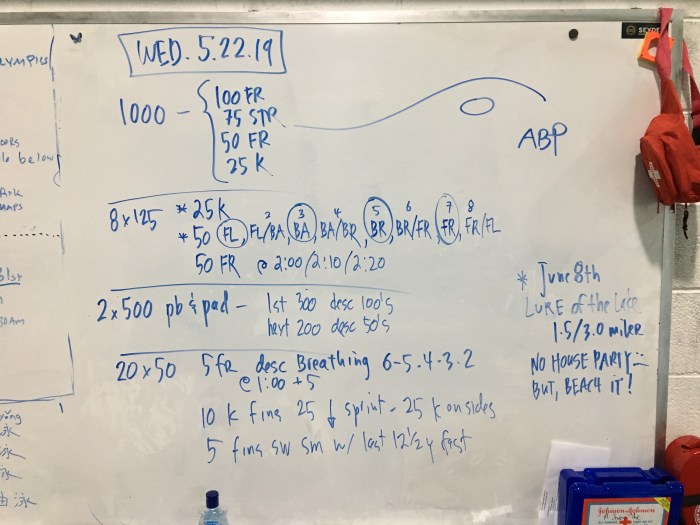 WED. 5.22.19
1000 - { 100 FR
75 STR
50 FR
25 K
ABP
8x125 * 25 K
* 50 FL, 2 FL/BA, 3 BA, 4 BA/BR, 5 BR, 6 BR/FR, 7 FR, 8 FR/FL
50 FR @ 2:00/2:10/2:20
2x500 pb & pad - 1st 300 desc 100's
next 200 desc 50's
20x50 5 fr desc Breathing 6-5-4-3-2
@ 1:00 +5
10 K fins 25 ↓ sprint - 25 K on sides
5 fins sw sm w/ last 12 1/2 y fast
* June 8th
LURE of the Lake
1.5/3.0 miler
NO HOUSE PARTY
BUT, BEACH IT!
LYMPICS
below
MAPS
30Am
泳
泳
泳
由泳
Johnson & Johnson